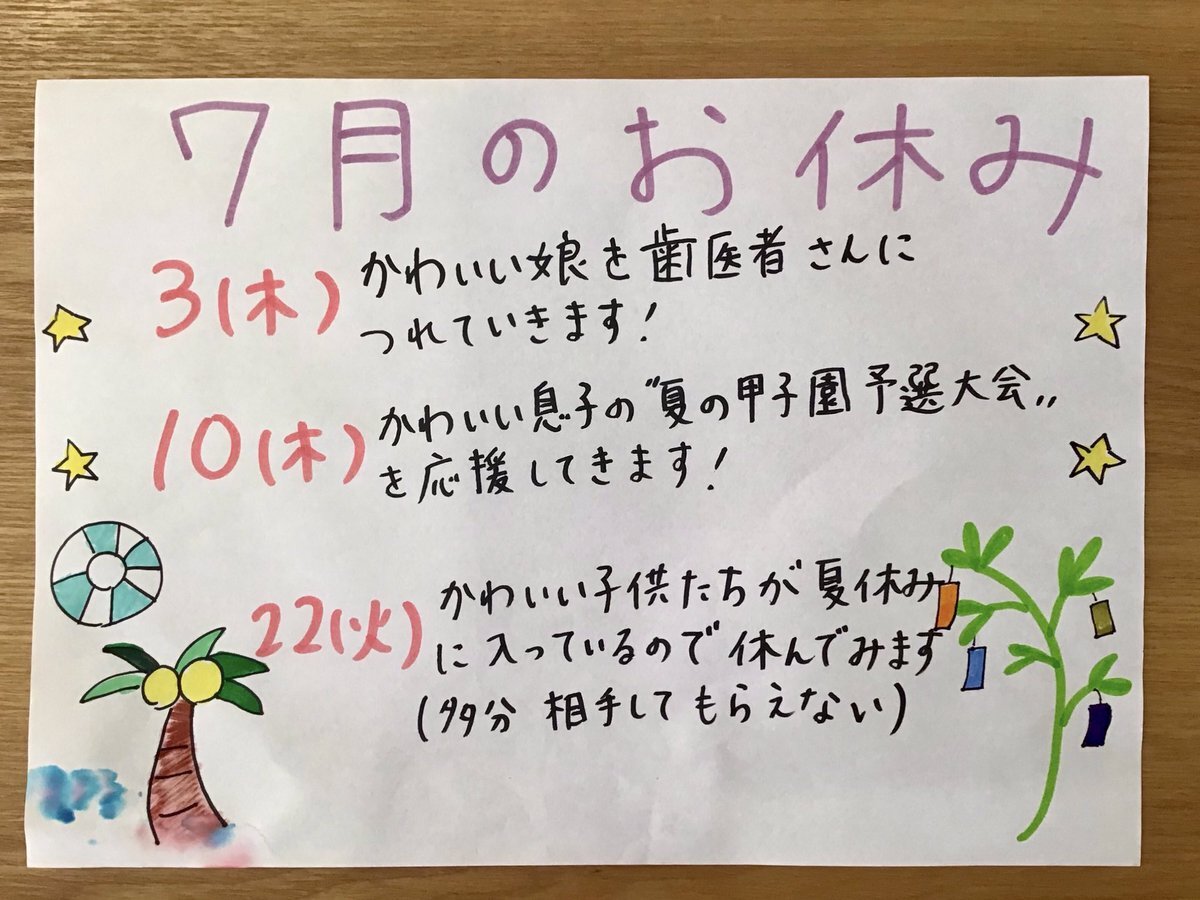 7月のお休み
3(木) かわいい娘を歯医者さんに
つれていきます!
10(木) かわいい息子の〝夏の甲子園予選大会〟
を応援してきます!
22(火) かわいい子供たちが夏休み
に入っているので休んでみます
(多分 相手してもらえない)